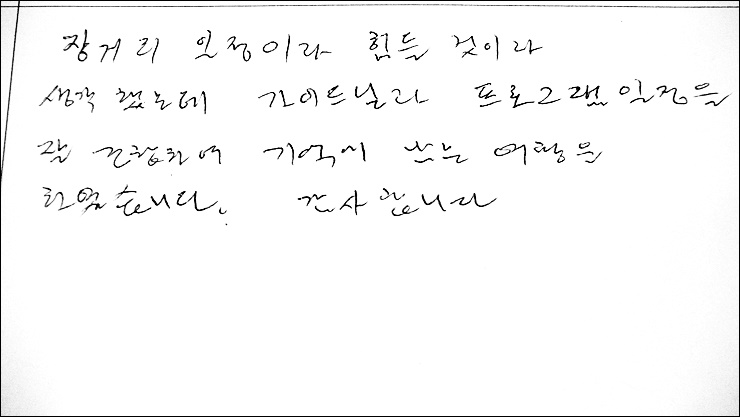 장거리 일정이라 힘들 것이라
생각했는데 가이드님과 프로그램 일정을
잘 조합하여 기억에 남는 여행을
하였습니다. 감사합니다